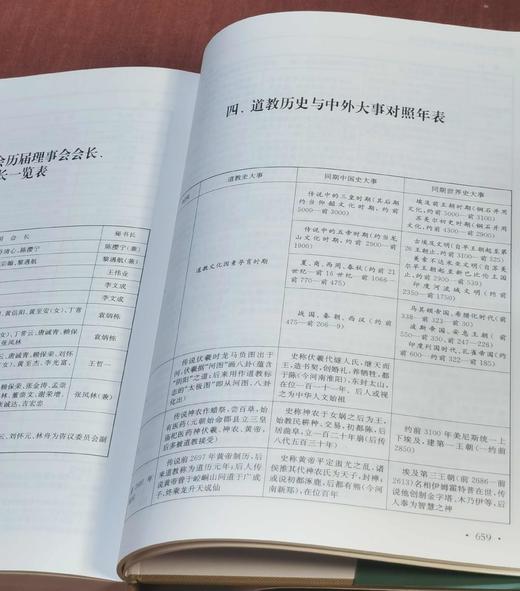 会历届理事会会长、
长一览表
会 长
秘书长
陈撄宁(兼)
黎遇航(兼)
王伟业
李文成
李文成
袁炳栋
袁炳栋
王哲一
张凤林(兼)
四、道教历史与中外大事对照年表
道教史大事
同期中国史大事
同期世界史大事
道教文化因素孕育时期
传说中的三皇时期(其后期
约当仰韶文化时期,约前
5000—前3000)
埃及前王朝时期(铜石并用
文化,约前5000—前3100)
苏美尔初史时期(铜石并用
传说中的五帝时期(约当龙
山文化时期,约前2900—前
1900)
夏、商、西周、春秋(约前21
世纪—前16世纪,前1066—前
770—前475)
战国、秦朝、西汉(约前
475—前206—9)
古埃及文明(自早王朝起至第
美索不达米亚文明(自苏美
尔早王朝起至新巴比伦王国
止,约前2900—前539)
印度河流域文明(约前
2350—前1750)
马其顿帝国、希腊化时代(前
338—前323—前30)
波斯帝国、安息王朝(前
550—前330,前247—228)
印度列国时代、孔雀帝国(约
前600—约前322—前185)
传说伏羲时龙马负图出于
河,伏羲据“河图”画八卦(蕴含
“阴阳”之道;后来用作道教标
志的“太极图”即从河图、八卦
史称伏羲代燧人氏,继天而
王,造书契,创婚礼,养牺牲,都
于陈(今河南淮阳),东封太山,
在位一百一十一年,后人或视
之为中华人文始祖
传说神农作蜡祭,尝百草,始
有医药(元朝始命郡县立三皇
庙祀医药神伏羲、神农、黄帝,
后多被道教接受)
史称神农于女娲之后为王,
始教民耕种、交易,初都陈,后
居曲阜,立一百二十年崩(后传
八代五百三十年)
约前3100年美尼斯统一上
下埃及,建第一王朝(—约前
2850)
传说前2697年黄帝制历,后
来道教称为道历元年;后人传
说黄帝曾于崆峒山问道于广成
子,终乘龙升天成仙
史称黄帝平定蚩尤之乱,诸
侯推其代神农氏为天子,封禅;
说初都涿鹿,后都有熊(今河
南新郑),在位百年
埃及第三王朝(前2686—前
2613)名相伊姆霍特普在世,传
说他创制金字塔、木乃伊等,后
人奉为智慧之神
·659·